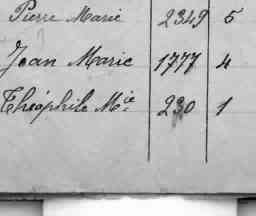 Pierre Marie 2349 5
Jean Marie 1777 4
Théophile Mie 230 1